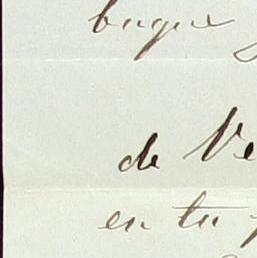 buque
de Ve
en tu